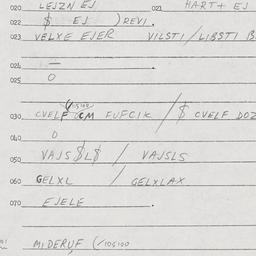 020 LEJZN EJ 021 HART+ EJ
022 $ EJ ) REVI.
023 VELXE EJER VILSTI / LIBSTI B
024 —
025 O
030 CVELF CM FUFCIK / $ CVELF DOZ
040 O
050 VAJS$L$ / VAJSLS
060 GELXL / GELXLAX
070 EJELE
MIDERUF (/105100